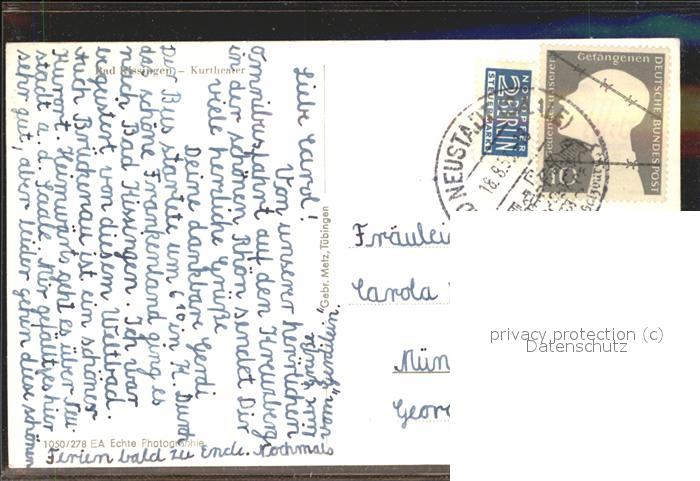 Bad Kissingen – Kurtheater
Liebe Carol!
Von unserer herrlichen
Omnibusfahrt auf den Kreuzberg
in der schönen Rhön sendet Dir
viele herzliche Grüße
Deine dankbare Gerdi
Der Bus startete um 6 10 in H. Durch
das schöne Frankenland ging es
nach Bad Kissingen. Ich war
begeistert von diesem Weltbad.
Auch Brückenau ist ein schöner
Kurort. Heimwärts geht es über Neu-
stadt a. d. Saale. Mir gefällt es hier
sehr gut, aber leider gehen diese schönen
Ferien bald zu Ende. Nochmals
Gruß von
"Gerdilein."
1050/278 EA Echte Photographie
Gebr. Metz, Tübingen
NOTOPFER
2 BERLIN
STEUERMARKE
Gedenket unserer
Gefangenen
DEUTSCHE BUNDESPOST
10
NEUSTADT
18.8.5
Fräulein
Carola
Mün
Geor
privacy protection (c)
Datenschutz